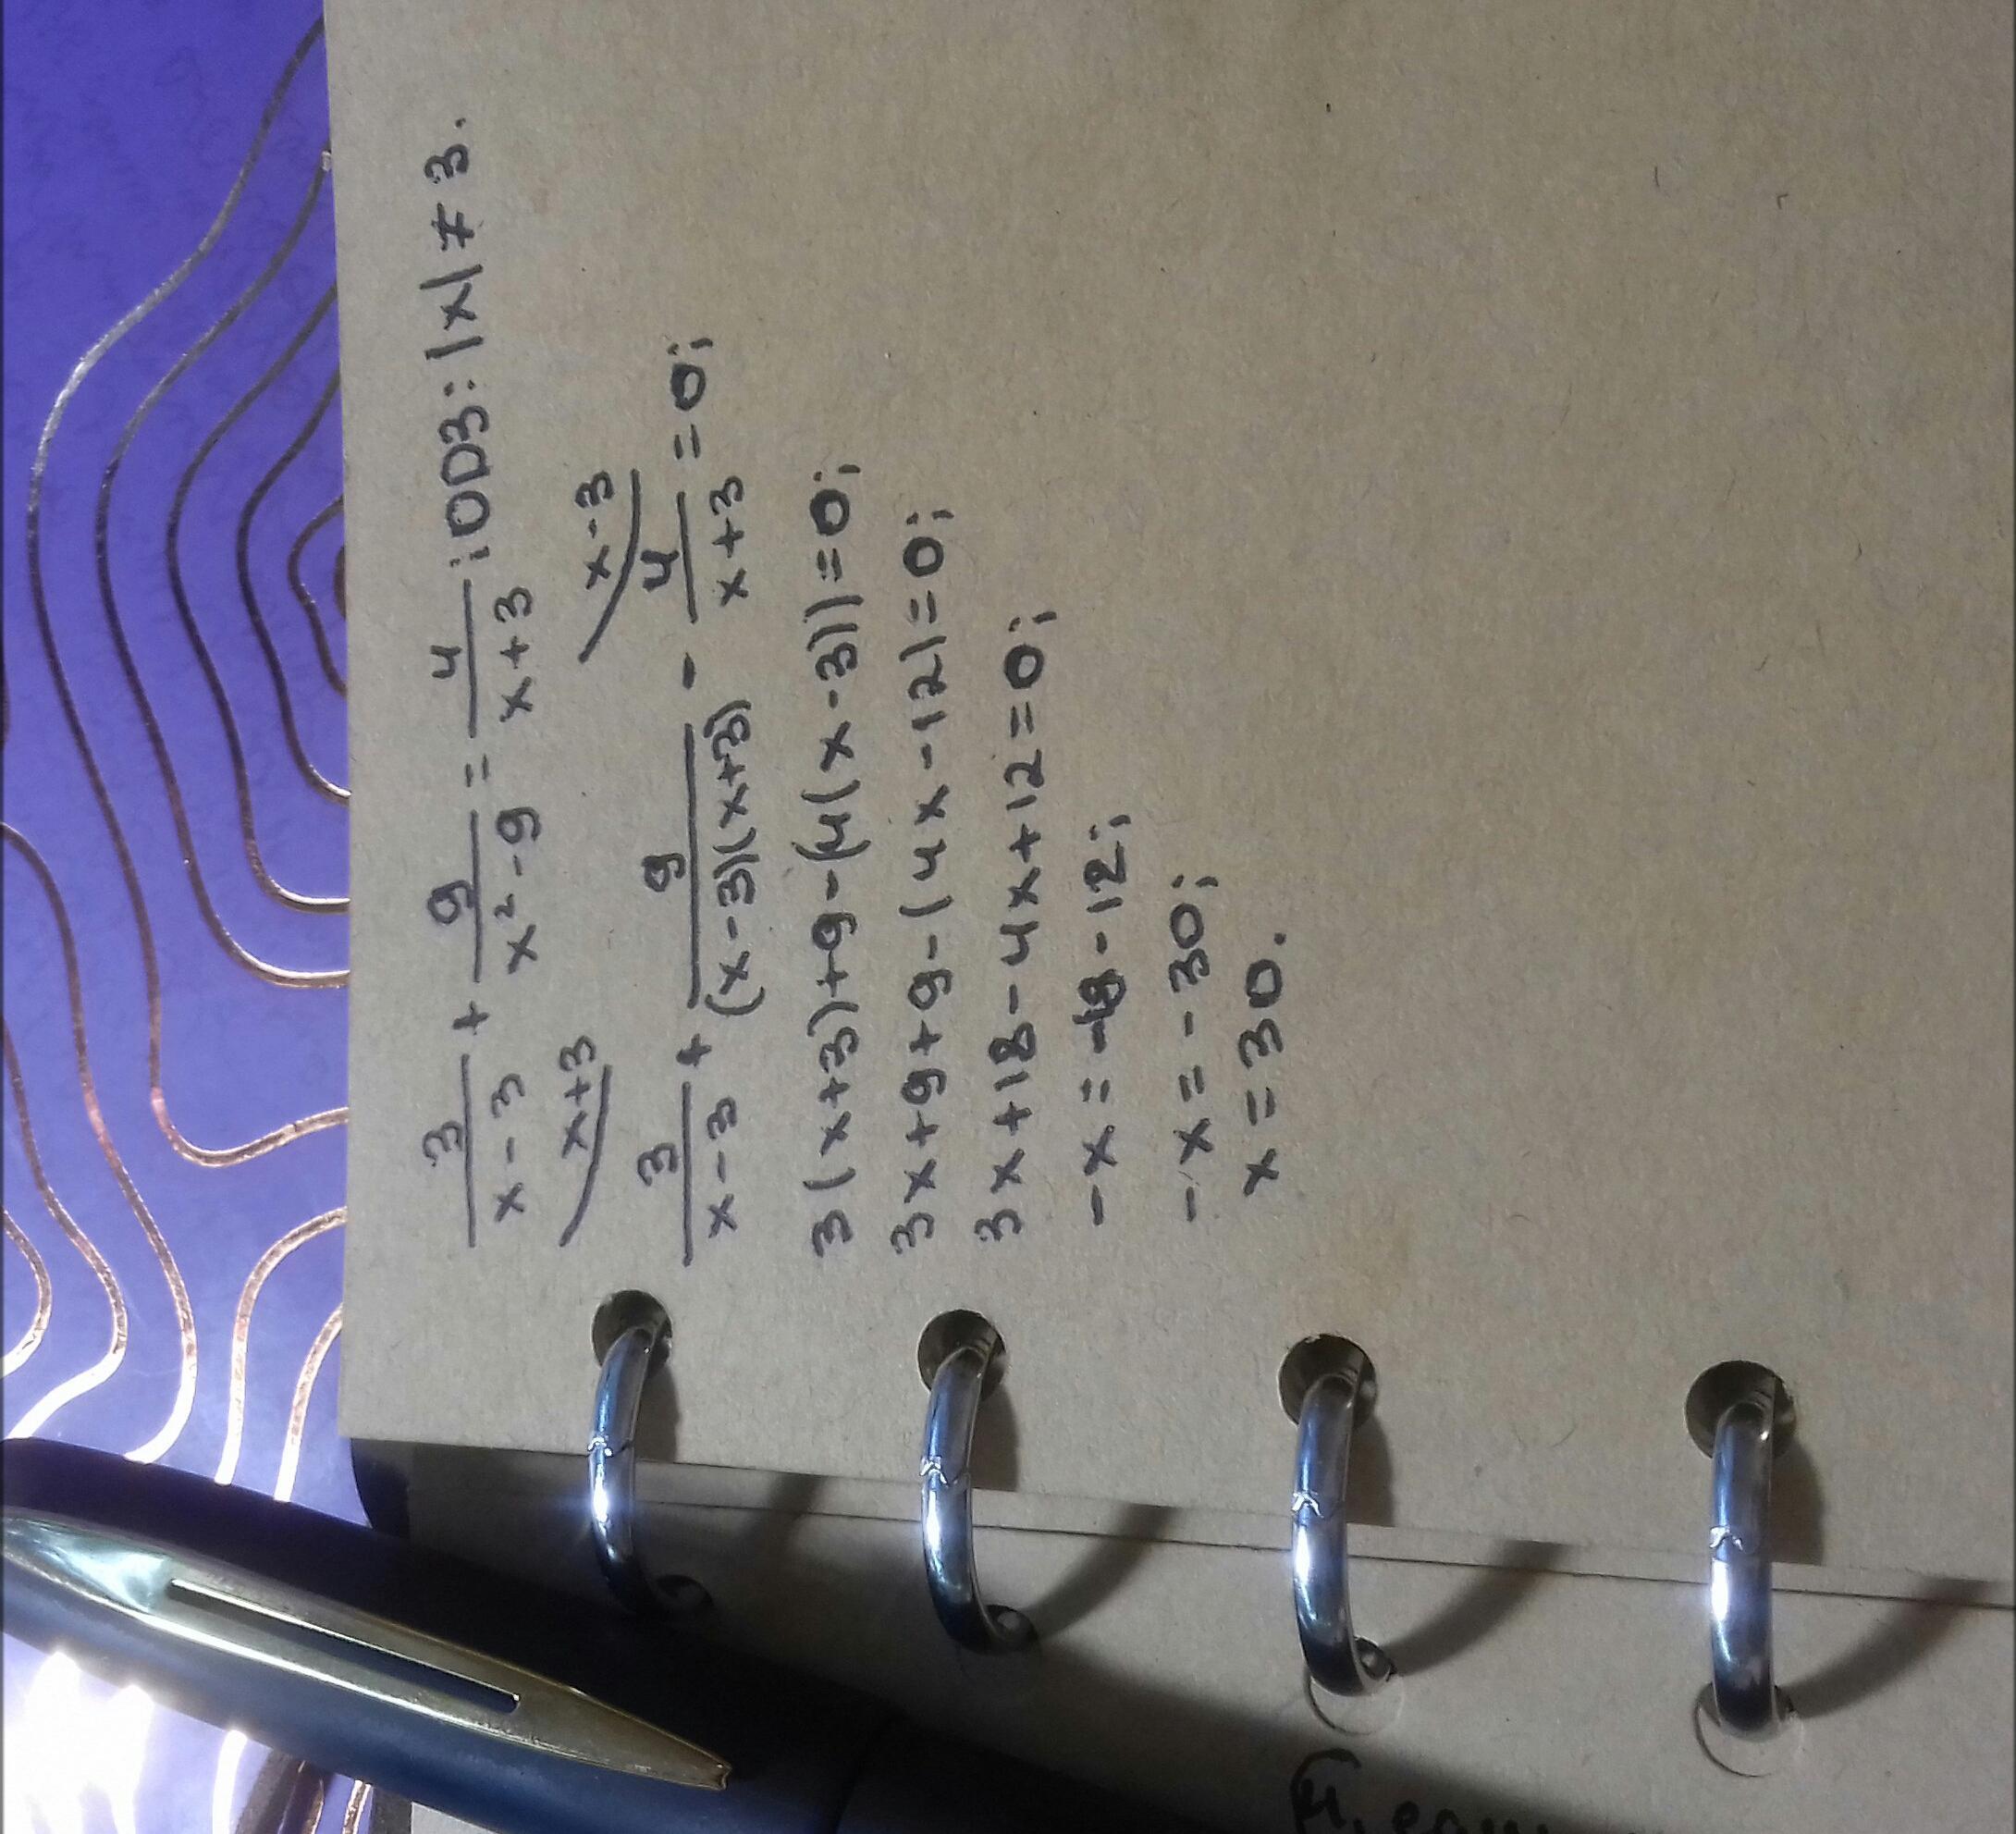 3/(x-3) + 9/(x²-9) = 4/(x+3); ОДЗ: |x| ≠ 3.
x+3 x-3
3/(x-3) + 9/((x-3)(x+3)) - 4/(x+3) = 0;
3(x+3)+9-(4(x-3))=0;
3x+9+9-(4x-12)=0;
3x+18-4x+12=0;
-x=-18-12;
-x=-30;
x=30.